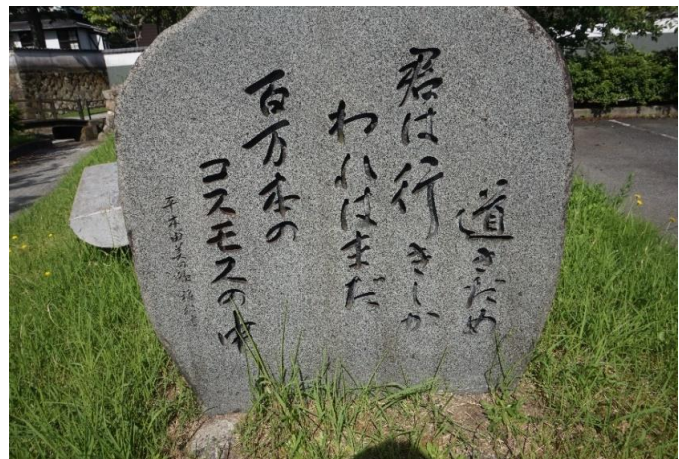 道さだめ
君は行きしか
われはまだ
百万本の
コスモスの中